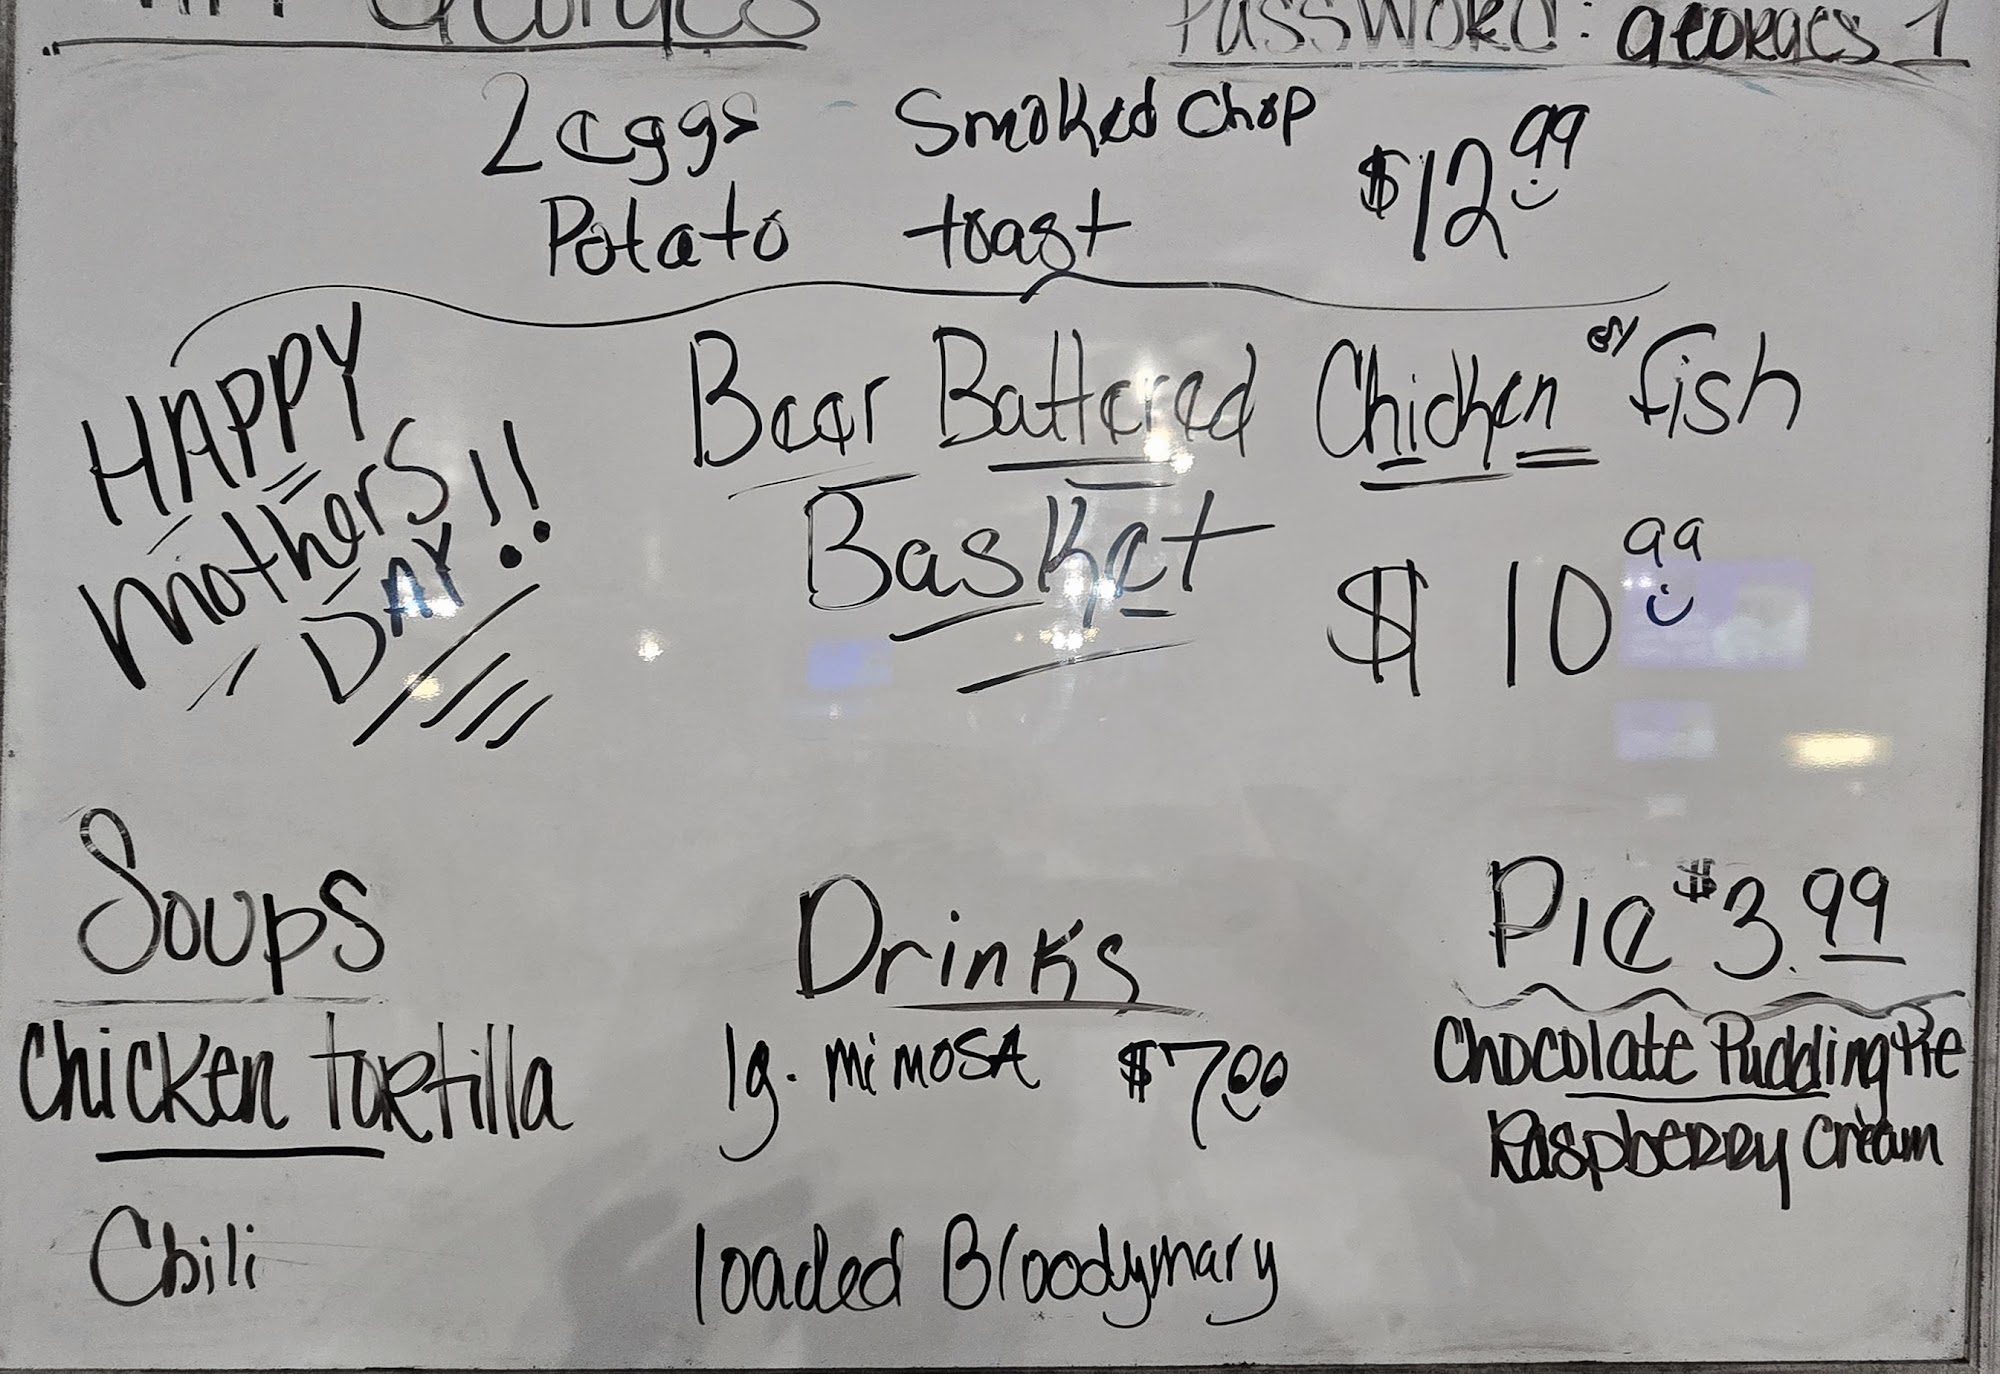 Georges
Password: georges 1
2 eggs Smoked Chop
Potato toast $12.99
HAPPY
mothers
DAY!!
Beer Battered Chicken or fish
Basket
$10.99
Soups
Chicken tortilla
Chili
Drinks
lg. mimosa $7.00
loaded Bloodymary
Pie $3.99
Chocolate Pudding Pie
Raspberry Cream